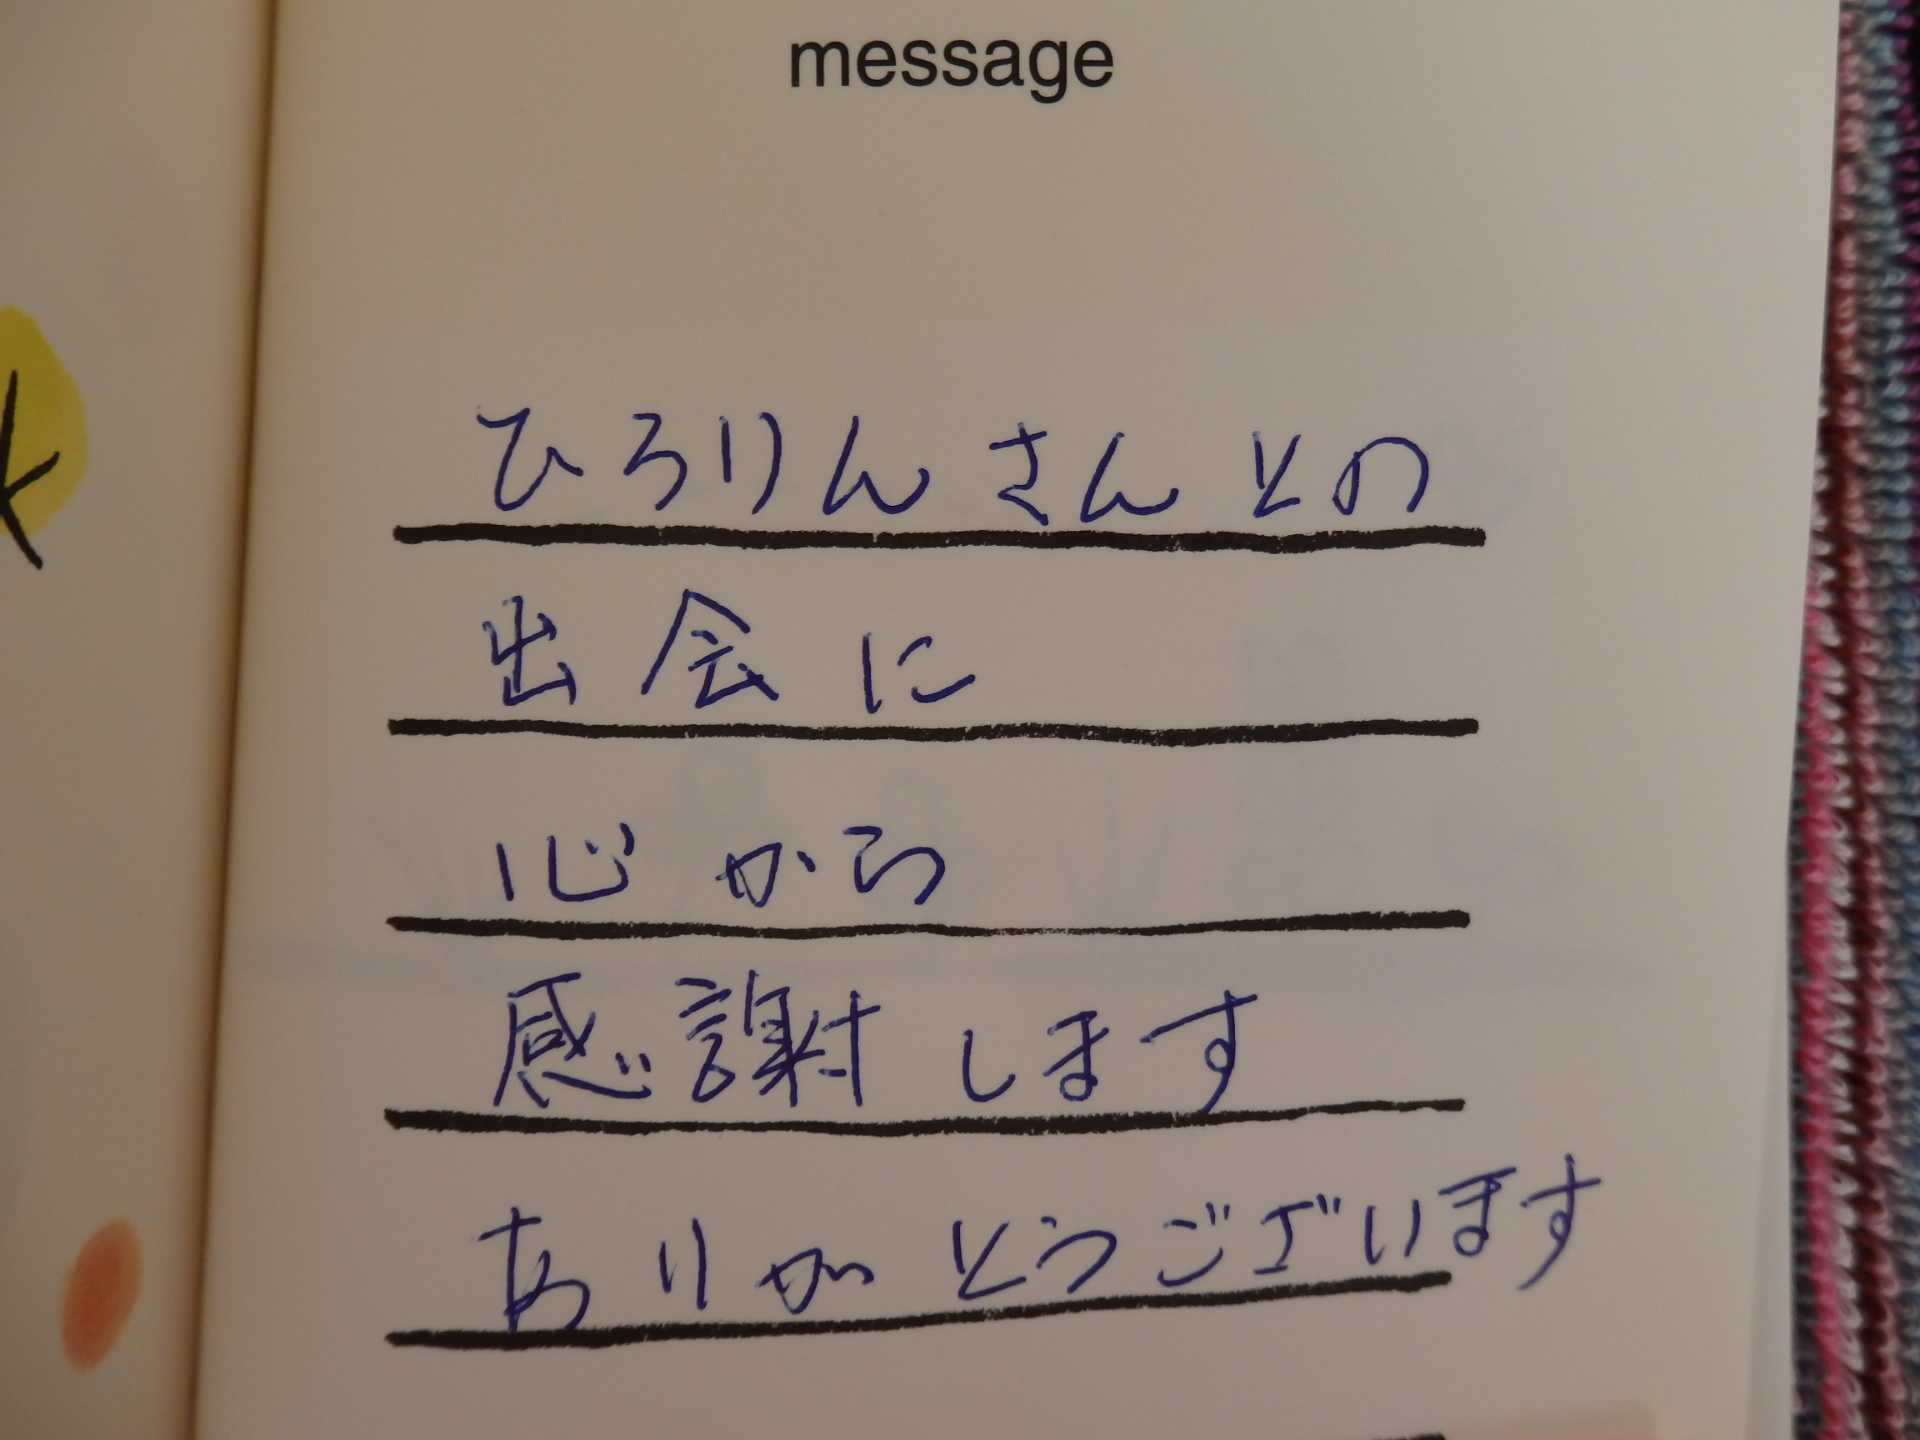 message
ひろりんさんとの
出会に
心から
感謝します
ありがとうございます
k